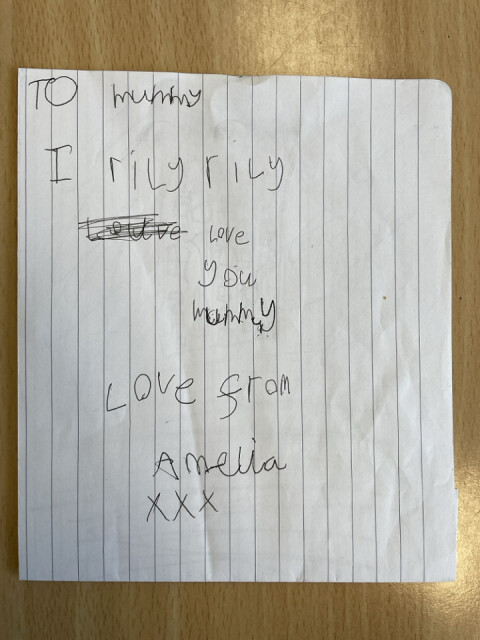 TO mummy
I rily rily
love
you
mummy
Love from
Amelia
xxx